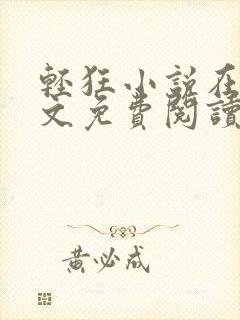 輕狂小說在
文免費閱讀
黃必成